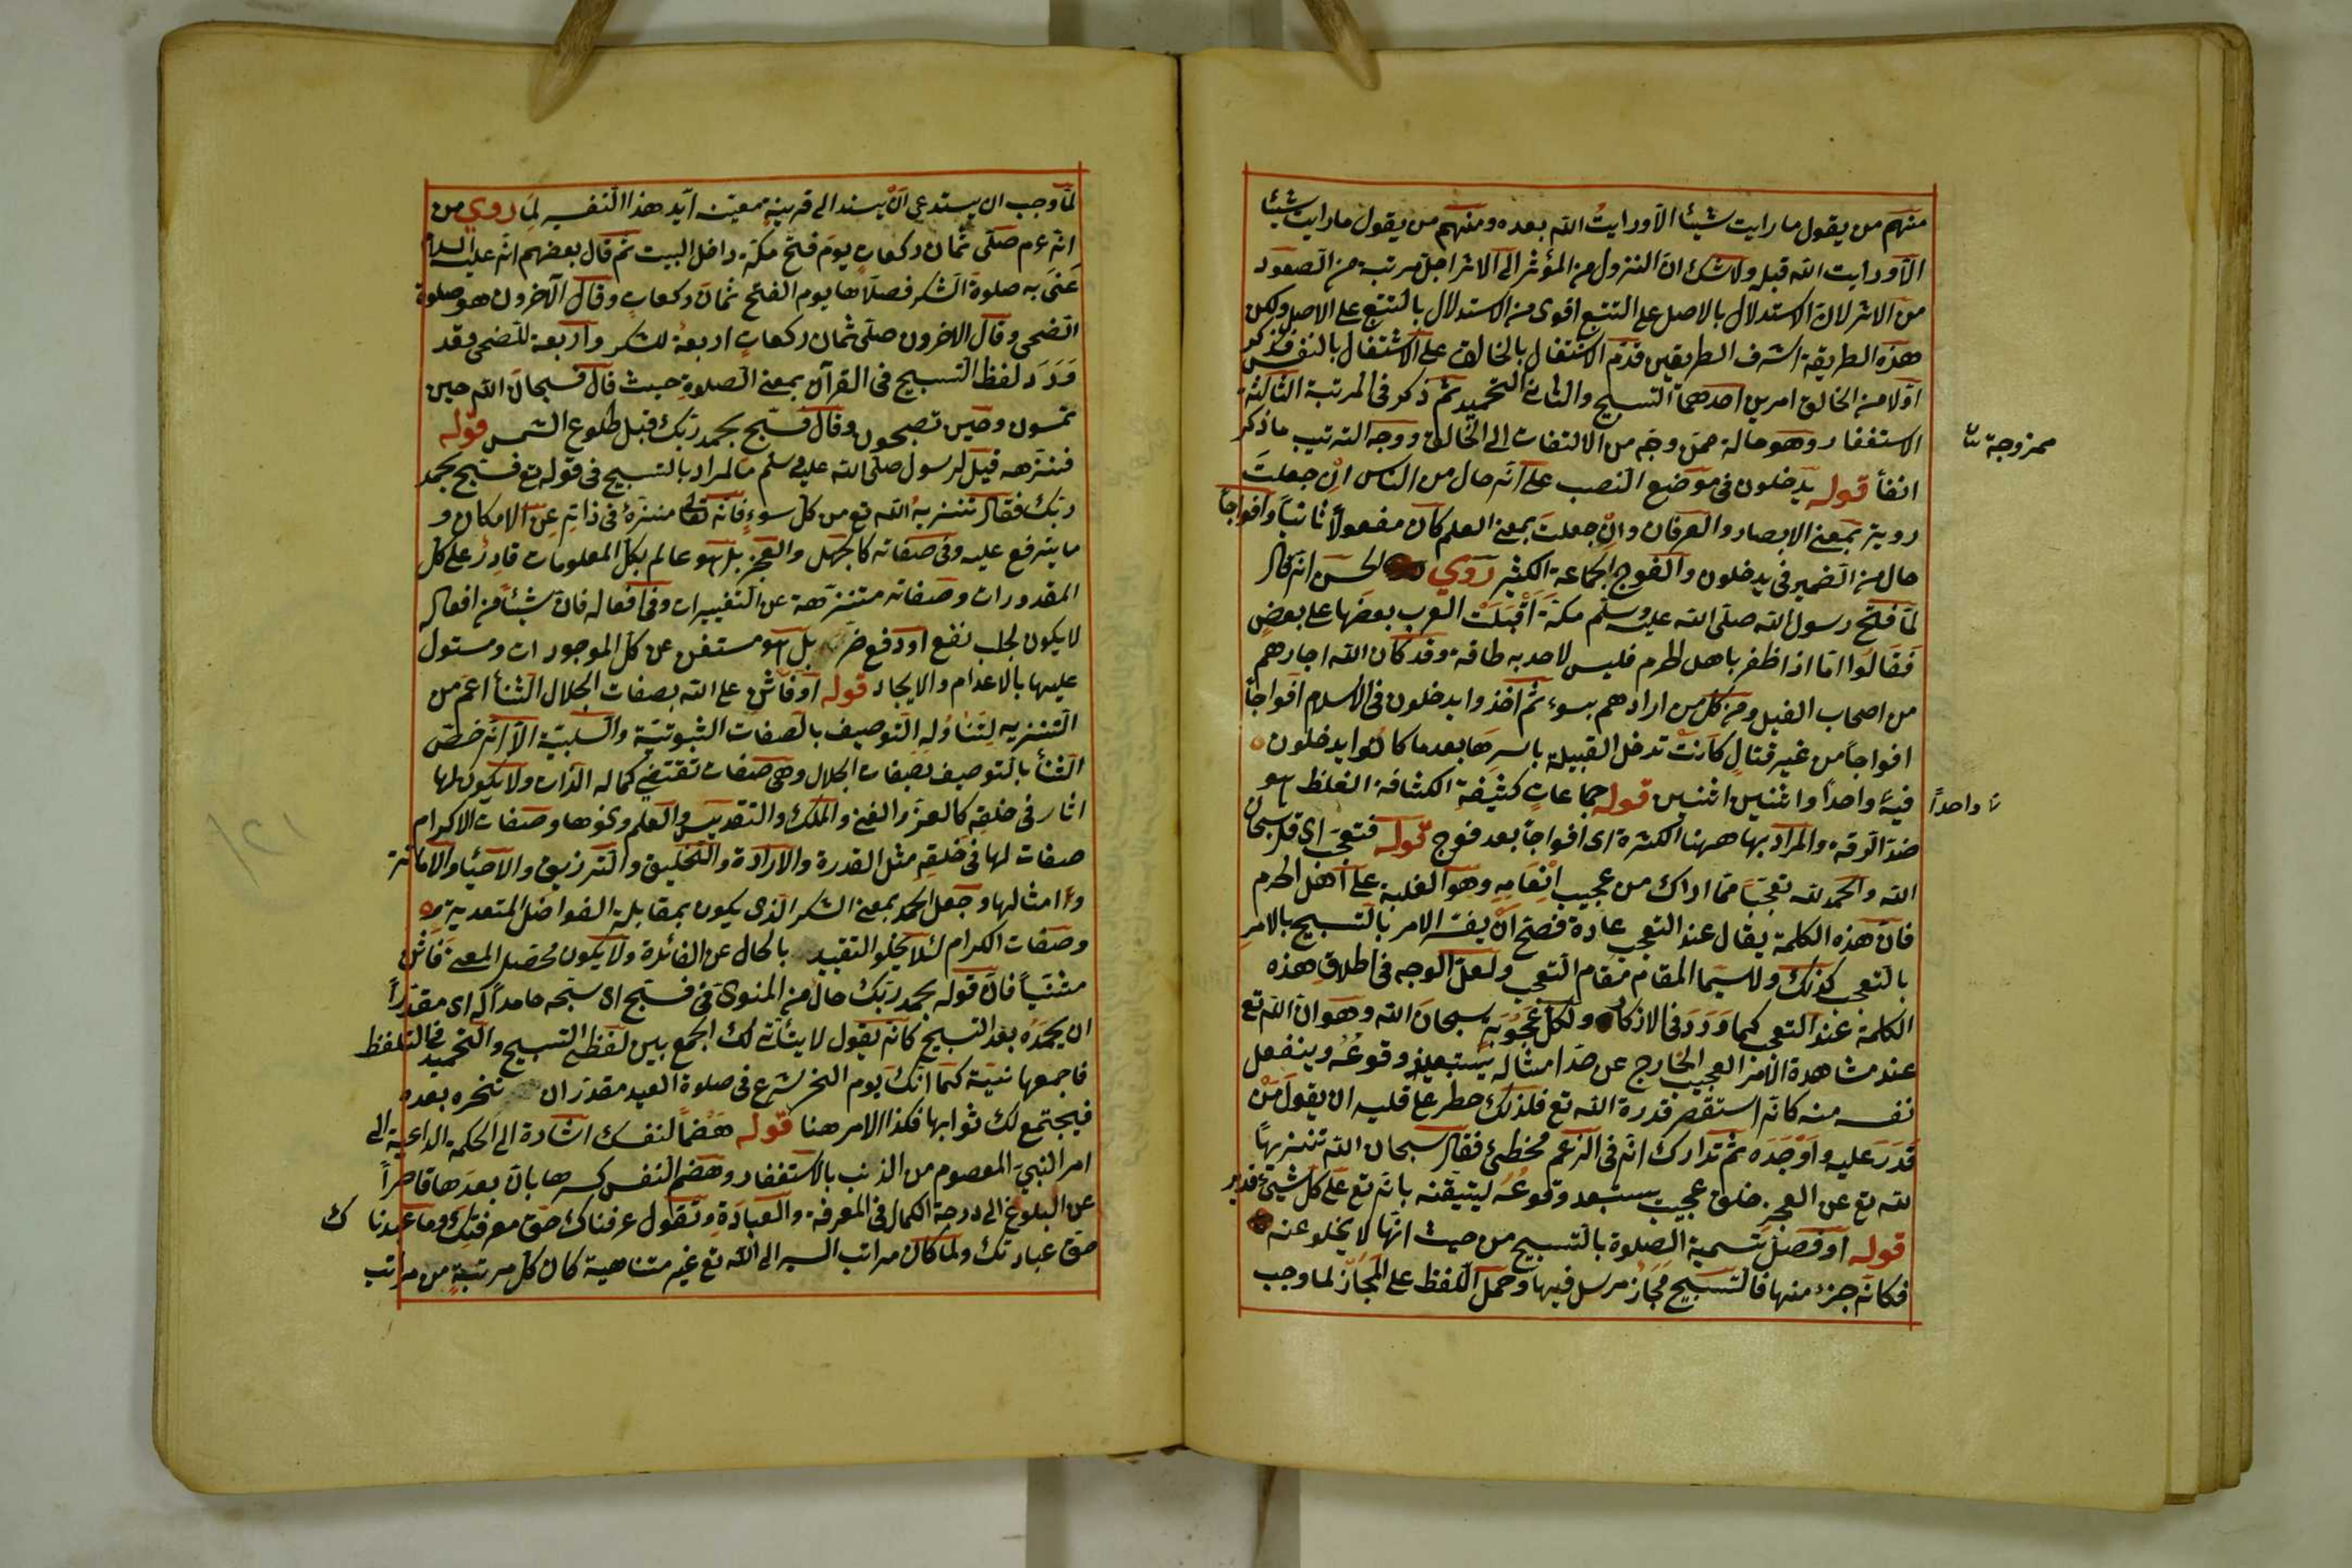 منهم من يقول ما رايت شيئا الا ورايت الله بعده ومنهم من يقول ما رايت شيئا
الا ورايت الله قبله ولا شك ان النزول من المؤثر الى الاثر اجل مرتبة من الصعود
من الاثر لان الاستدلال بالاصل على التبع اقوى من الاستدلال بالتبع على الاصل ولكن
هذه الطريقة اشرف الطريقين قدم الاشتغال بالخالق على الاشتغال بالنفس فذكر
اولا من الخالق امرين احدهما التسبيح والثانى التحميد ثم ذكر فى المرتبة الثالثة
الاستغفار وهو حالة ممزوجة من الالتفات الى الخالق ووجه الترتيب ما ذكر
ممزوجة
انفا قوله يدخلون فى موضع النصب على انه حال من الناس ان جعلت
رويته بمعنى الابصار والعرفان وان جعلت بمعنى العلم كان مفعولا ثانيا وافواجا
حال من الضمير فى يدخلون والفوج الجماعة الكثير روي الحسن انه قال
لما فتح رسول الله صلى الله عليه وسلم مكة اقبلت العرب بعضها على بعض
فقالوا اما اذا ظفر باهل الحرم فليس لاحد به طاقة وقد كان الله اجارهم
من اصحاب الفيل ومن كل من ارادهم بسوء ثم اخذوا يدخلون فى الاسلام افواجا
افواجا من غير قتال كانت تدخل القبيلة باسرها بعد ما كانوا يدخلون
فيه واحدا واثنين اثنين قوله جماعات كثيفة الكثافة الغلظ هو
واحدا
ضد الرقة والمراد بها ههنا الكثرة اى افواجا بعد فوج قوله فتعجب اى قل سبحان
الله والحمد لله تعجبا مما اراك من عجيب انعامه وهو الغلبة على اهل الحرم
فان هذه الكلمة يقال عند التعجب عادة فصح ان يفسر الامر بالتسبيح بالامر
بالتعجب كذلك ولا سيما المقام مقام التعجب ولعل الوجه فى اطلاق هذه
الكلمة عند التعجب كما ورد فى الاذكار ولكل اعجوبة سبحان الله وهو ان الله تع
عند مشاهدة الامر العجيب الخارج عن حد امثاله يستبعد وقوعه وينفعل
نفسه منه كانه استقصر قدرة الله تع فلذلك خطر على قلبه ان يقول من
قدر عليه واوجده ثم تدارك انه فى الزعم مخطئ فقال سبحان الله تنزيها
لله تع عن العجز خلق عجيب يستبعد وقوعه ليتيقنه بانه تع على كل شيئ قدير
قوله او فصل تسمية الصلوة بالتسبيح من حيث انها لا يخلو عنه
فكانه جزء منها فالتسبيح مجاز مرسل فيها وحمل اللفظ على المجاز لما وجب
لما وجب ان يستدعى ان يسند الى قرينة معينة ايد هذا التفسير لما روي من
انه ءم صلى ثمان ركعات يوم فتح مكة داخل البيت ثم قال بعضهم انه عليه السلام
عنى به صلوة الشكر فصلاها يوم الفتح ثمان ركعات وقال الآخرون هو صلوة
الضحى وقال الاخرون صلى ثمان ركعات اربعة للشكر واربعة للضحى وقد
ورد لفظ التسبيح فى القرآن بمعنى الصلوة حيث قال فسبحان الله حين
تمسون وحين تصبحون وقال فسبح بحمد ربك قبل طلوع الشمس قوله
فنزهه قيل لرسول صلى الله عليه وسلم ما المراد بالتسبيح فى قوله تع فسبح بحمد
ربك فقال تنزيه الله تع من كل سوء فانه تعالى منزه فى ذاته عن الامكان و
ما يترفع عليه وفى صفاته كالجهل والعجز بل هو عالم بكل المعلومات قادر على كل
المقدورات وصفاته متنزهة عن التغييرات وفى افعاله فان شيئا من افعاله
لا يكون لجلب نفع او دفع ضر بل هو مستغن عن كل الموجودات ومستول
عليها بالاعدام والايجاد قوله او فاثن على الله بصفات الجلال الثنأ اعم من
التنزيه لتناوله التوصيف بالصفات الثبوتية والسلبية الا انه خص
الثنأ بالتوصيف بصفات الجلال وهى صفات تقتضى كمالة الذات ولا يكون لها
اثار فى خلقه كالعز والغنى والملك والتقديس والعلم ونحوها وصفات الاكرام
صفات لها فى خلقه مثل القدرة والارادة والتخليق والترزيق والاحيا والاماتة
وامثالها وجعل الحمد بمعنى الشكر الذى يكون بمقابلة الفواضل المتعدية
وصفات الكرام لئلا يخلو التقييد بالحال عن الفائدة ولا يكون محصل المعنى فاثن
مثنيا فان قوله بحمد ربك حال من المنوى فى فسبح اى سبحه حامدا له اى مقدرا
ان يحمده بعد التسبيح كانه يقول لا يتأتى لك الجمع بين لفظى التسبيح والتحميد فى التلفظ
فاجمعها نية كما انك يوم النحر تشرع فى صلوة العيد مقدر ان تنحره بعده
فيجتمع لك ثوابها فكذا الامر هنا قوله هضما لنفسك اشارة الى الحكمة الداعية الى
امر النبي المعصوم من الذنب بالاستغفار وهضم النفس كسرها بان يعدها قاصرا
عن البلوغ الى درجة الكمال فى المعرفة والعبادة وتقول عرفناك حق معرفتك وما عبدناك
حق عبادتك ولما كان مراتب السير الى الله تع غير متناهية كان كل مرتبة من مراتب